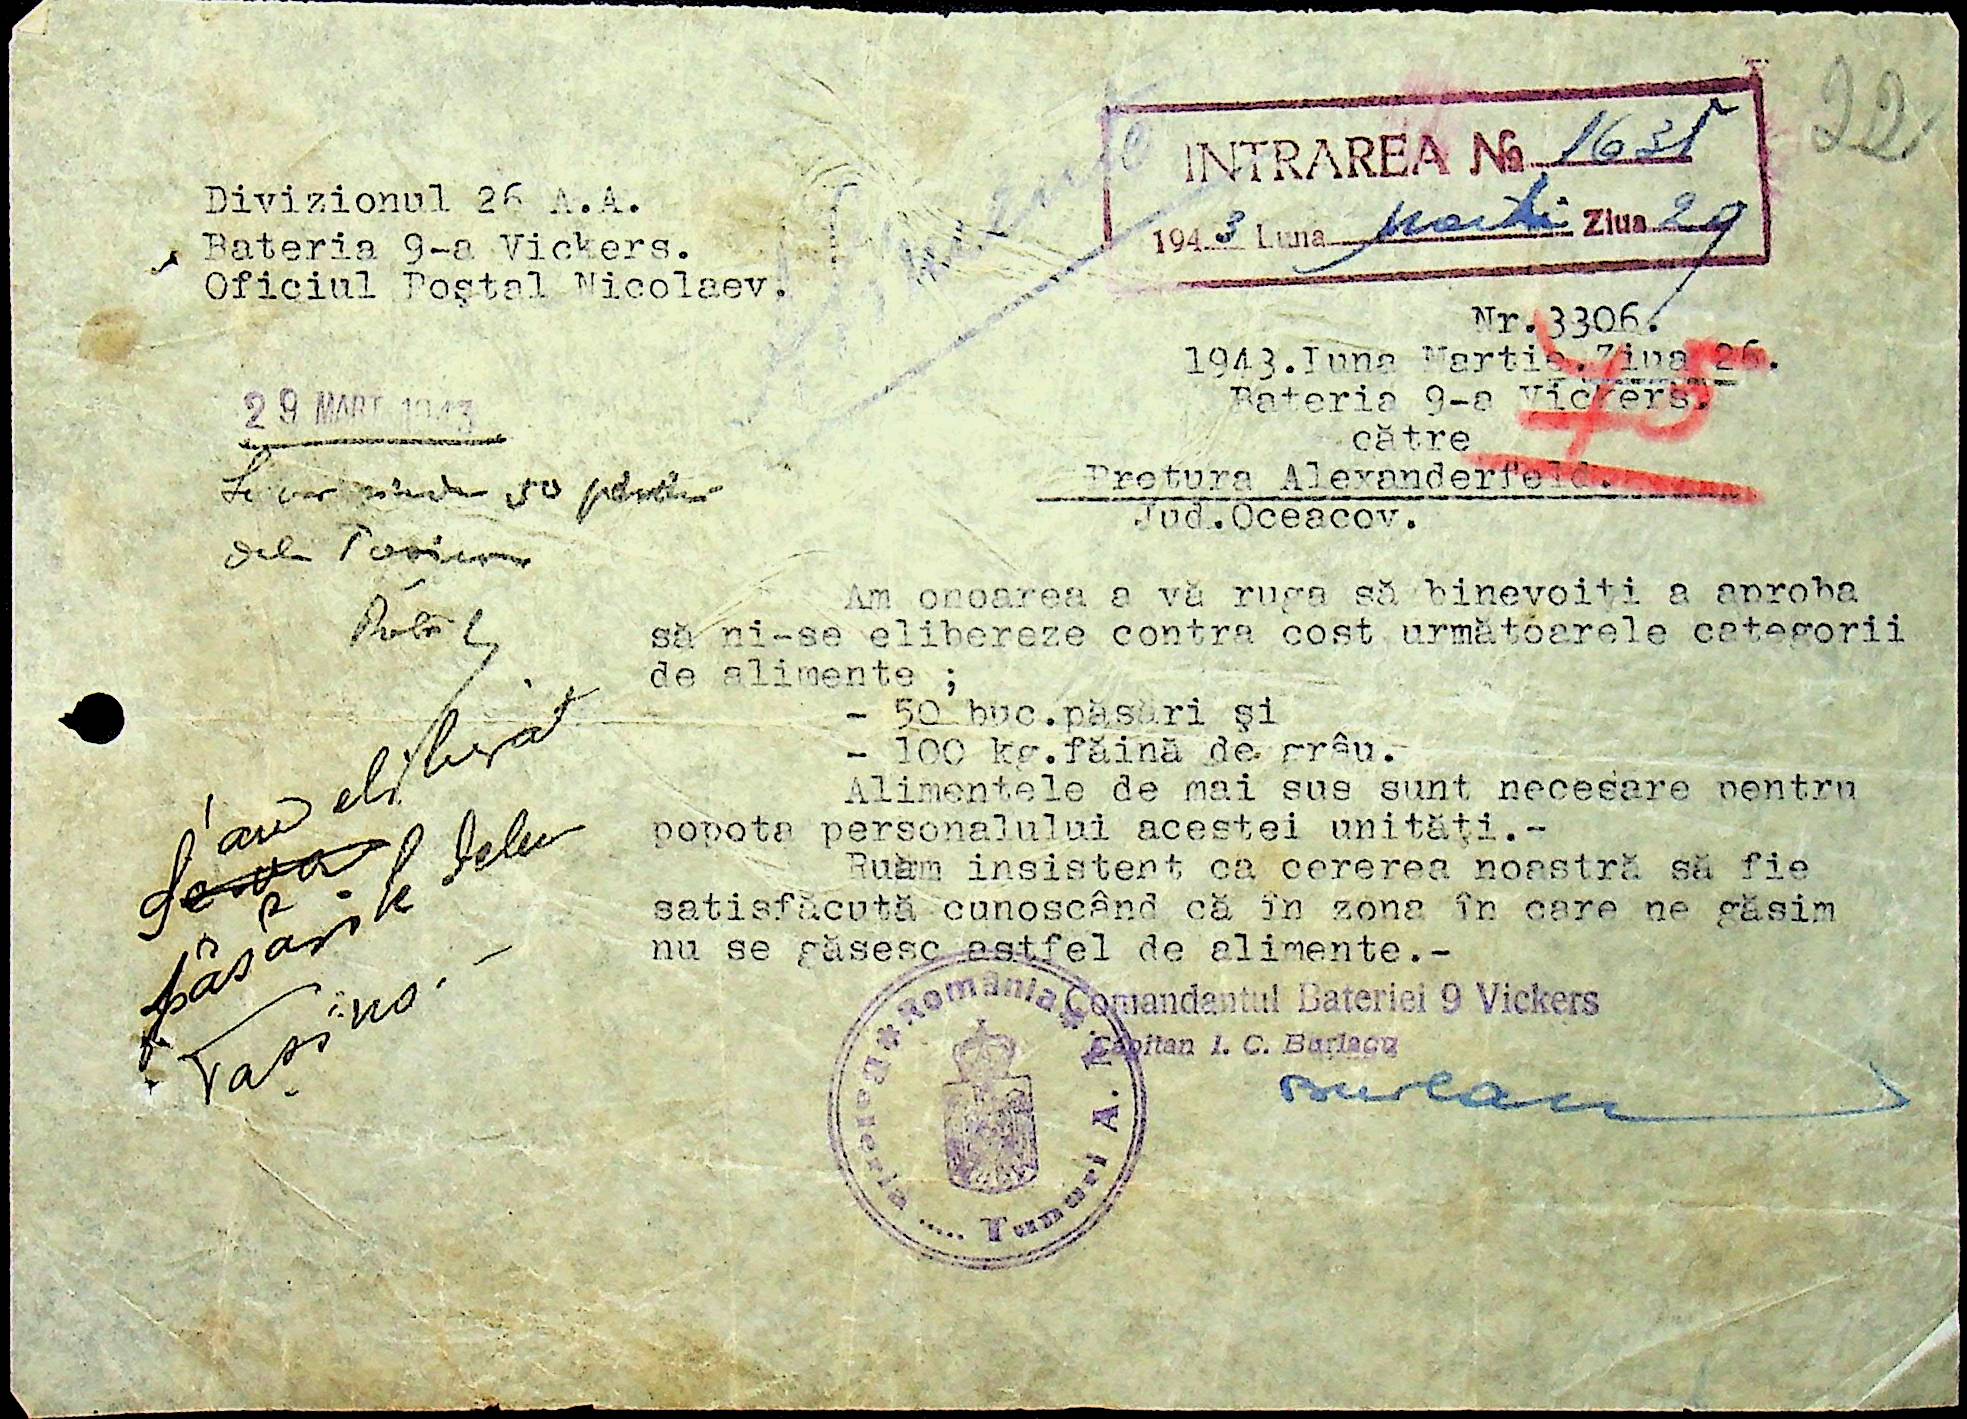 22.
INTRAREA No. 1635
1943 Luna Martie Ziua 29
Divizionul 26 A.A.
Bateria 9-a Vickers.
Oficiul Poştal Nicolaev.
Alimente
Nr.3306.
1943.Luna Martie.Ziua 26.
Bateria 9-a Vickers.
către
Pretura Alexanderfeld.
Jud.Oceacov.
75
29 MART 1943
Se vor vinde 50 păsări
dela
Am onoarea a vă ruga să binevoiţi a aproba
să ni-se elibereze contra cost următoarele categorii
de alimente ;
- 50 buc.păsări şi
- 100 kg.făină de grâu.
Alimentele de mai sus sunt necesare pentru
popota personalului acestei unităţi.-
Rugăm insistent ca cererea noastră să fie
satisfăcută cunoscând că în zona în care ne găsim
nu se găsesc astfel de alimente.-
S'au eliberat
păsările dela
Tasino.-
Comandantul Bateriei 9 Vickers
Căpitan I. C. Burlacu
România
Bateria ..... Tunuri A. A.